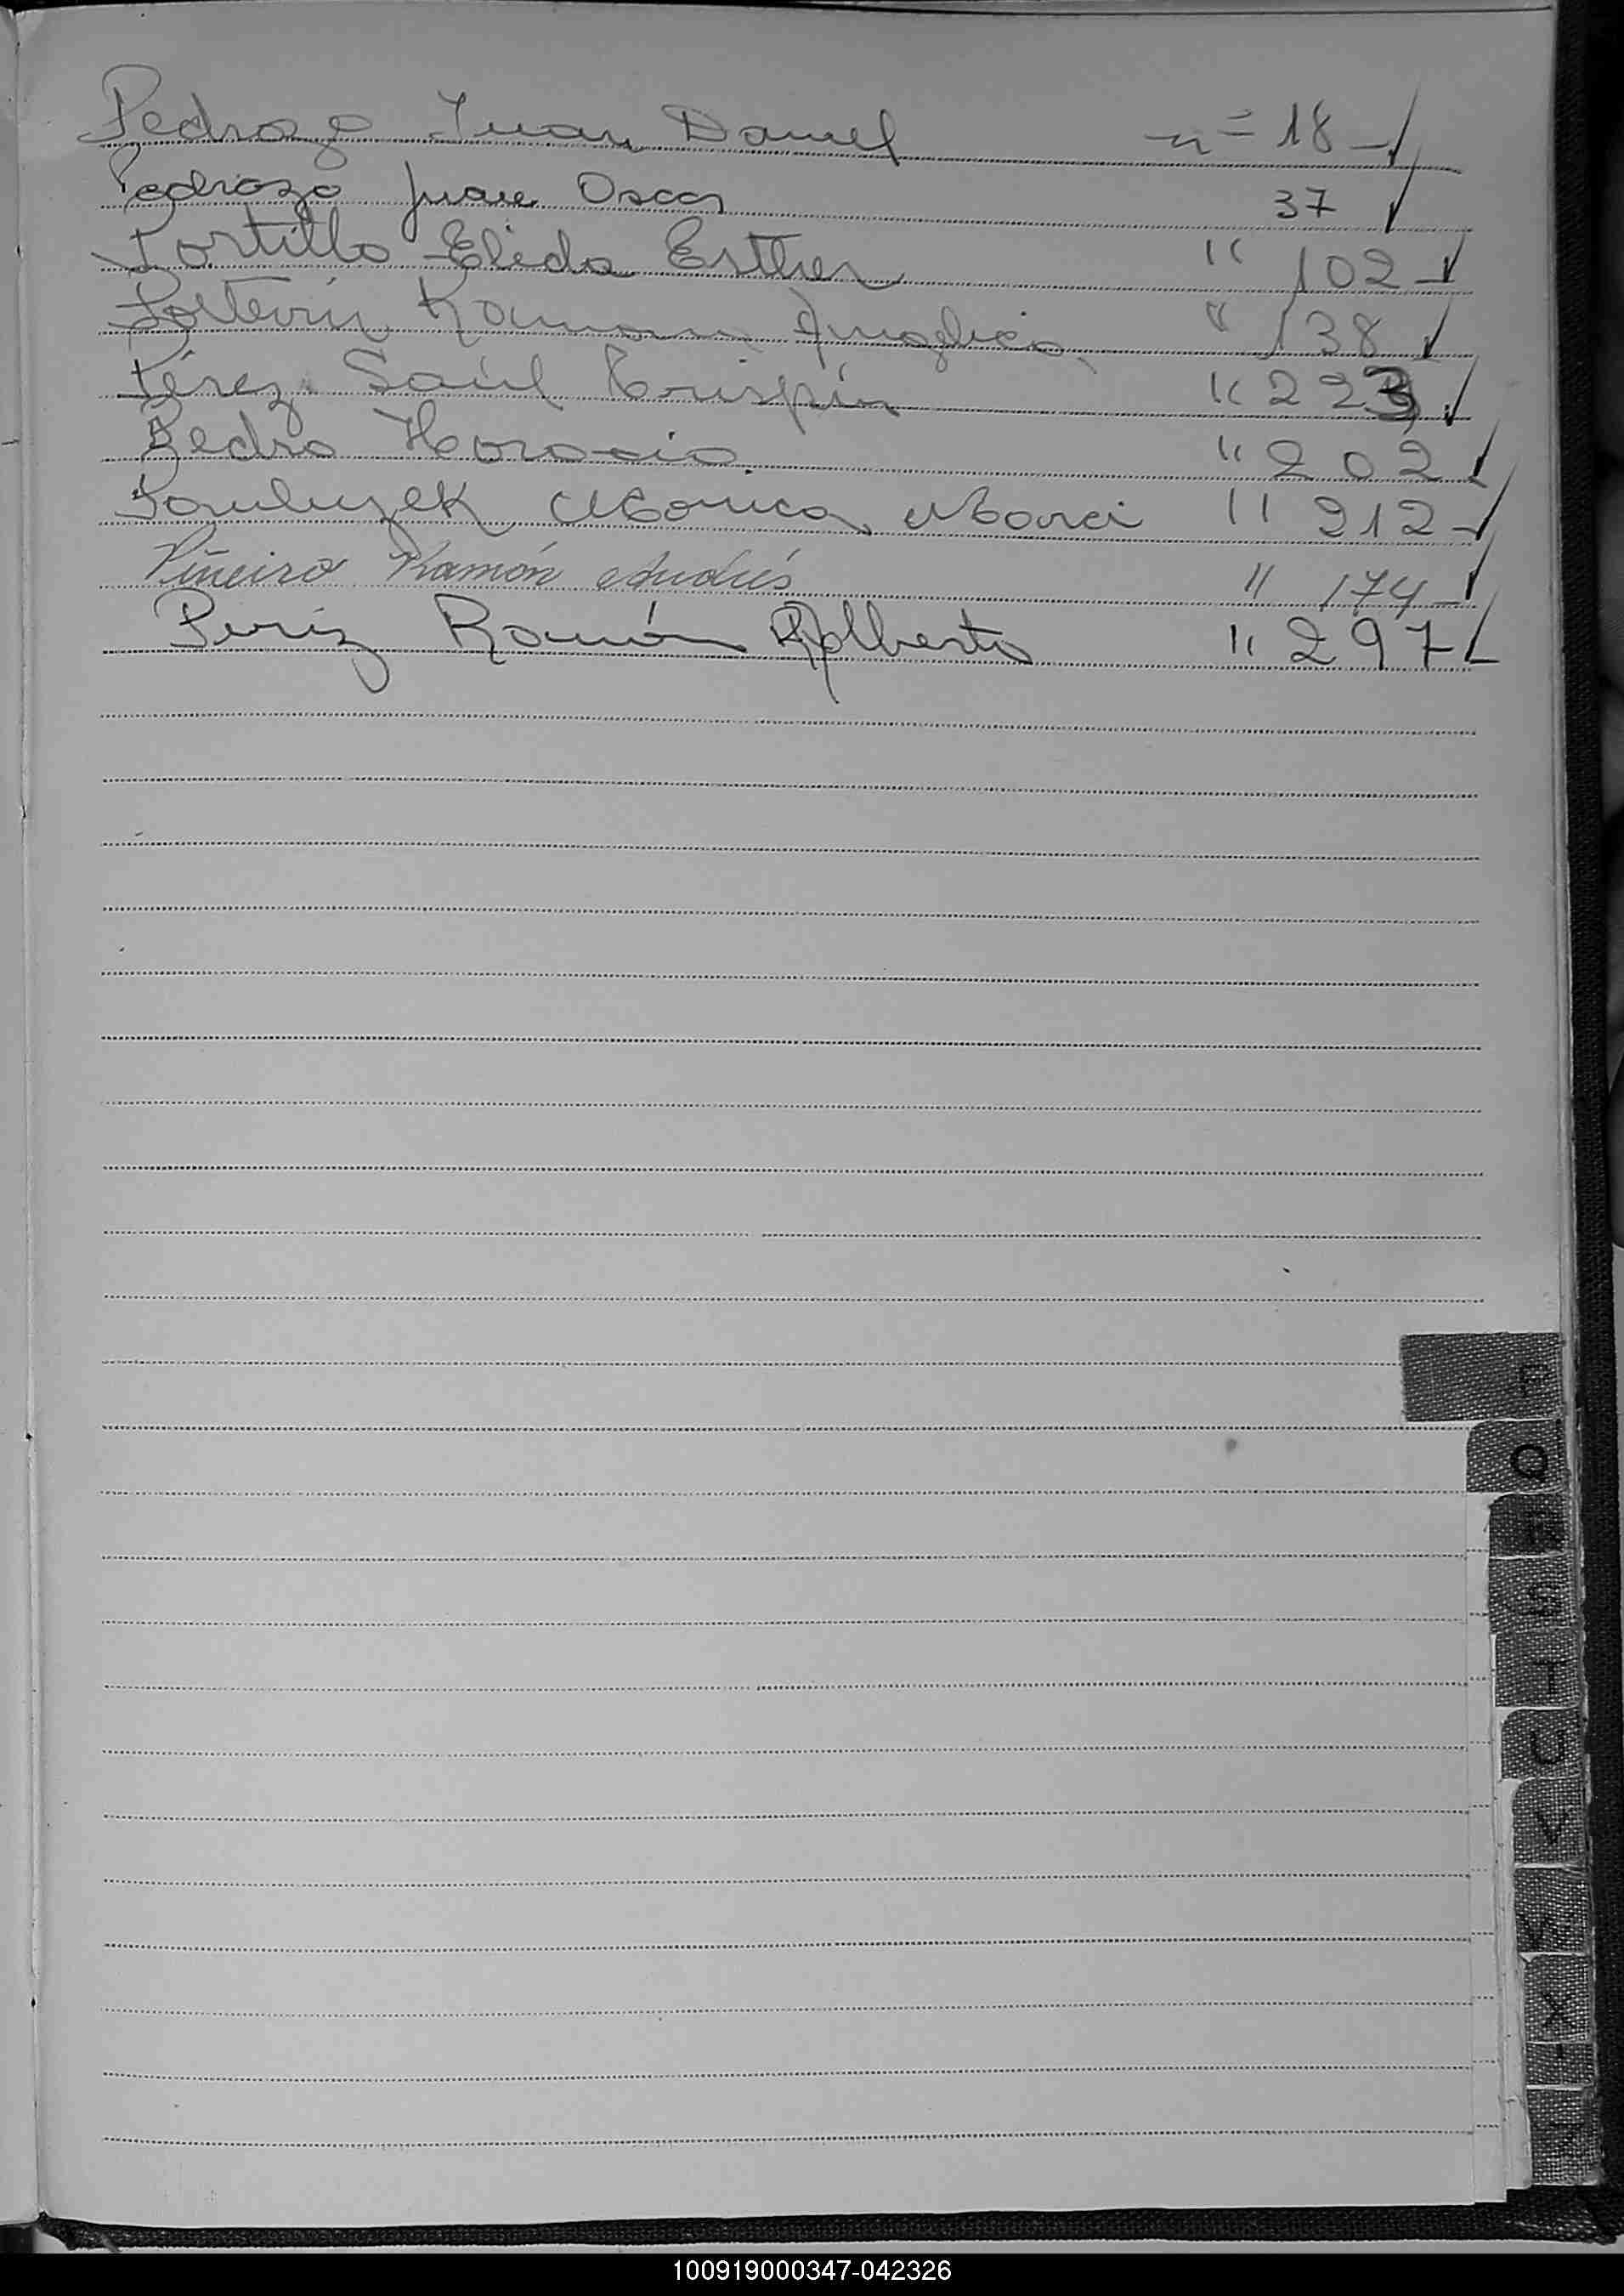 Pedrozo Juan Daniel n= 18
Pedrozo Juan Oscar 37
Portillo Elida Esther " 102
Ramona Angelica " 138
Pérez Saúl Crispín " 223
Pedro Horacio. " 202
Monica 11 212
Piñeiro Ramón Andrés " 174
Periz Ramón Alberto " 297
P
Q
R
S
T
U
V
W
X
100919000347-042326